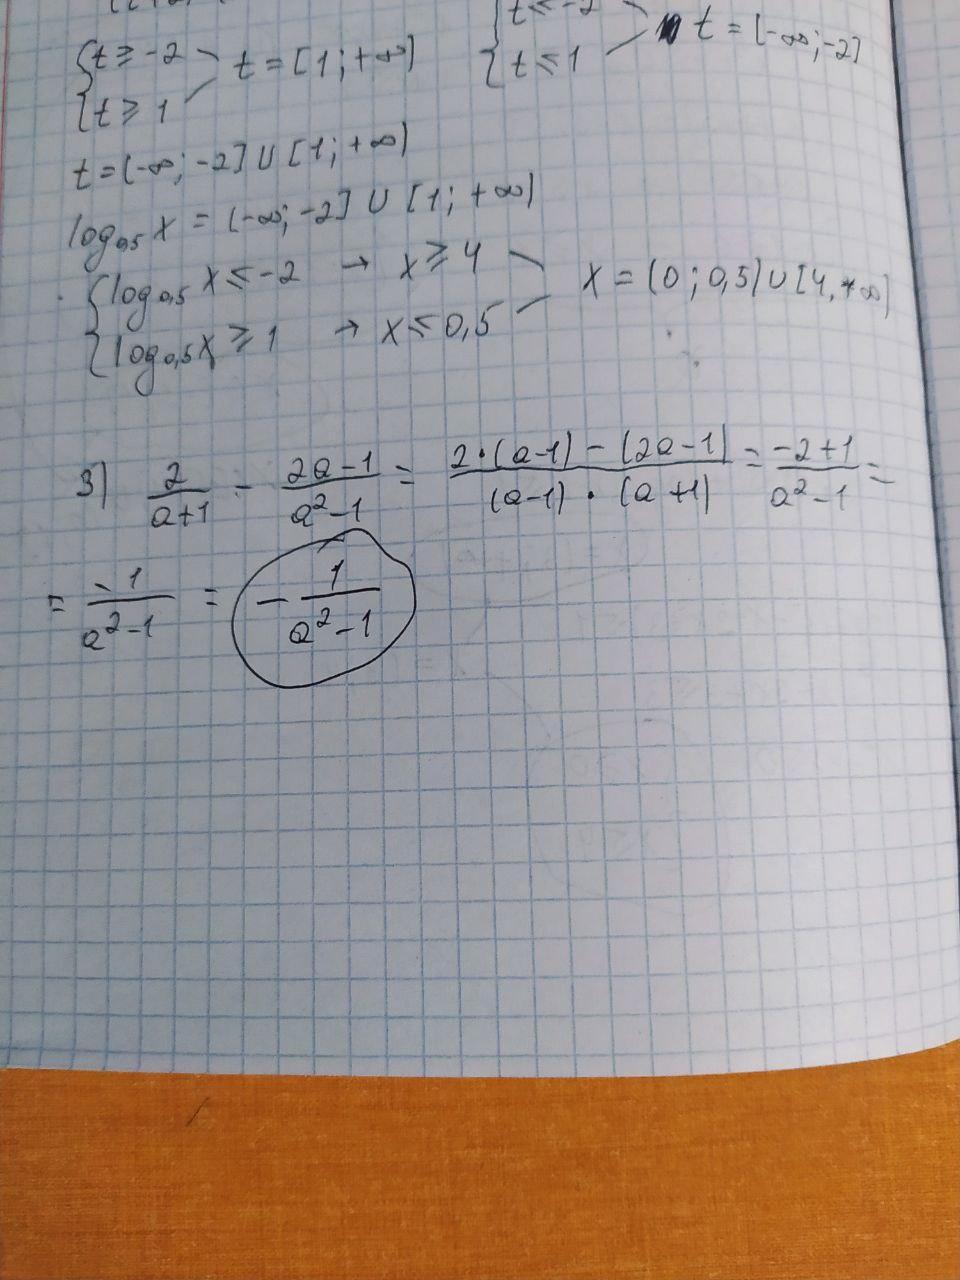 {t ≥ -2
{t ≥ 1
t = [1; +∞)
t ≤ -2
{t ≤ 1
t = (-∞; -2]
t = (-∞; -2] ∪ [1; +∞)
log₀,₅ x = (-∞; -2] ∪ [1; +∞)
{log₀,₅ x ≤ -2 → x ≥ 4
{log₀,₅ x ≥ 1 → x ≤ 0,5
x = (0; 0,5) ∪ [4, +∞)
3) 2/(a+1) - (2a-1)/(a²-1) = (2·(a-1) - (2a-1))/((a-1)·(a+1)) = (-2+1)/(a²-1) =
= -1/(a²-1) = -1/(a²-1)